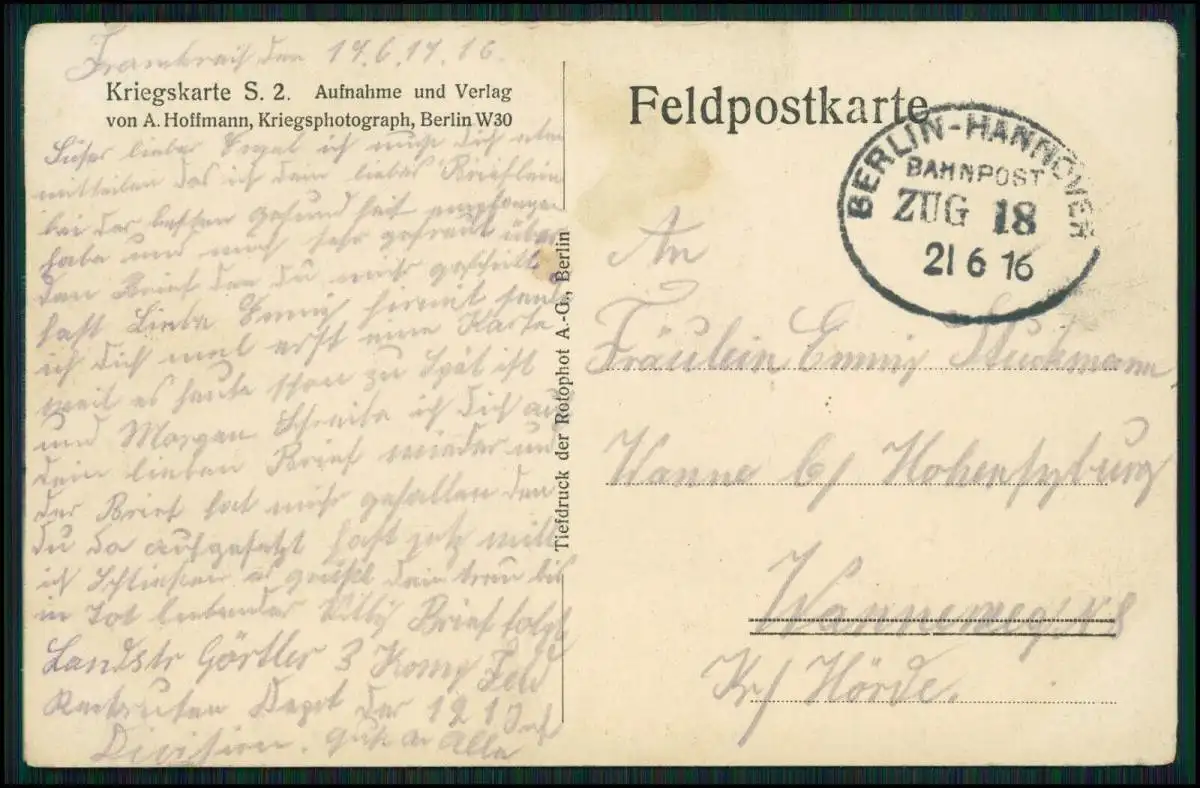 Frankreich den 17.6.19 16.
Kriegskarte S. 2. Aufnahme und Verlag
von A. Hoffmann, Kriegsphotograph, Berlin W30
lieber ich muss dich eben
mitteilen das ich dein liebes Brieflein
bei der besten Gesundheit empfangen
habe und mich sehr gefreut über
den Brief den du mir geschickt
hast Liebe hermit sende
ich dich mal erst eine Karte
weil es heute schon zu Spät ist
und Morgen Schreibe ich dich auf
dein lieben Brief wieder und
der Brief hat mich gefallen den
du da aufgesetzt hast jetz will
ich Schliessen es grüßt dein treu bis
in Tot liebender Willy Brief folgt
Landstr Görtler 3 Komp Feld
Rekruten Depot der 19 Inf
Division. Gruß an Alle
Tiefdruck der Rotophot A.-G., Berlin
Feldpostkarte
BERLIN-HANNOVER
BAHNPOST
ZUG 18
21 6 16
An
Fräulein Emmy
Wanne b/ Hohensyburg
Wanneweg N 8
Kr/ Hörde.